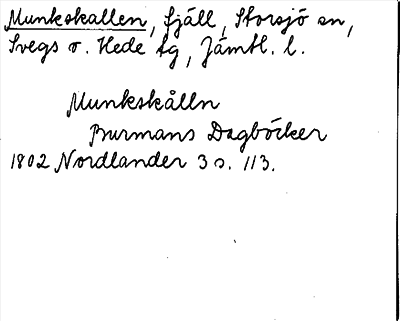 Munkskallen, fjäll, Storsjö sn,
Svegs o. Hede tg, Jämtl. l.
Munkskålln
Burmans Dagböcker
1802 Nordlander 3 s. 113.